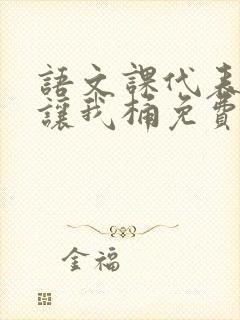 語文課代表
讓我桶免費
金福